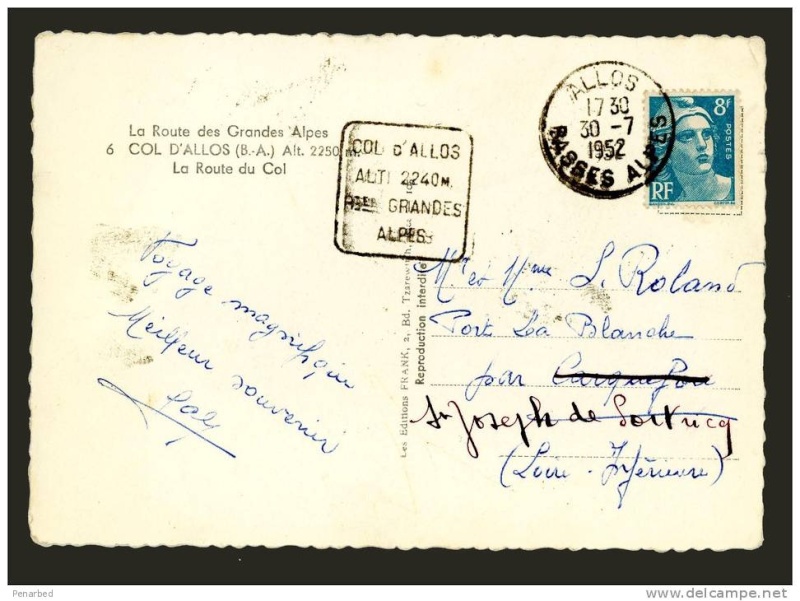 La Route des Grandes Alpes
6 COL D'ALLOS (B.-A.) Alt. 2250 m.
La Route du Col
COL D'ALLOS
ALTI 2240 M.
RTE GRANDES
ALPES
ALLOS
17 30
30 -7
1952
BASSES ALPES
8F
POSTES
RF
Voyage magnifique
Meilleur souvenir
Les Editions FRANK, 2, Bd. Tzarewitch
Reproduction interdite
Mr et Mme L. Roland
Port La Blanche
par Carquefou
St Joseph de Portricq
(Loire-Inférieure)
Penarbed
delcampe.net